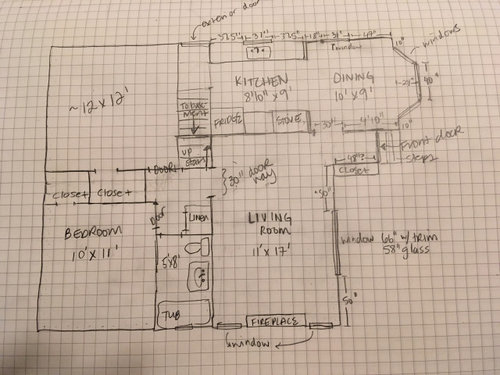 exterior door
37.5"
31"
37.5"
18"
31"
47"
window
10"
windows
~12 x 12'
KITCHEN
8'10" x 9'
DINING
10' x 9'
29"
40"
To base
ment
FRIDGE
STOVE
4'10"
10"
up
stairs
Front door
steps
DOOR
30" door
way
48"?
closet
closet
closet
50"
Door
Linen
BEDROOM
10' x 11'
LIVING
ROOM
11' x 17'
window 66" w/trim
58" glass
5'x8'
50"
TUB
FIREPLACE
window